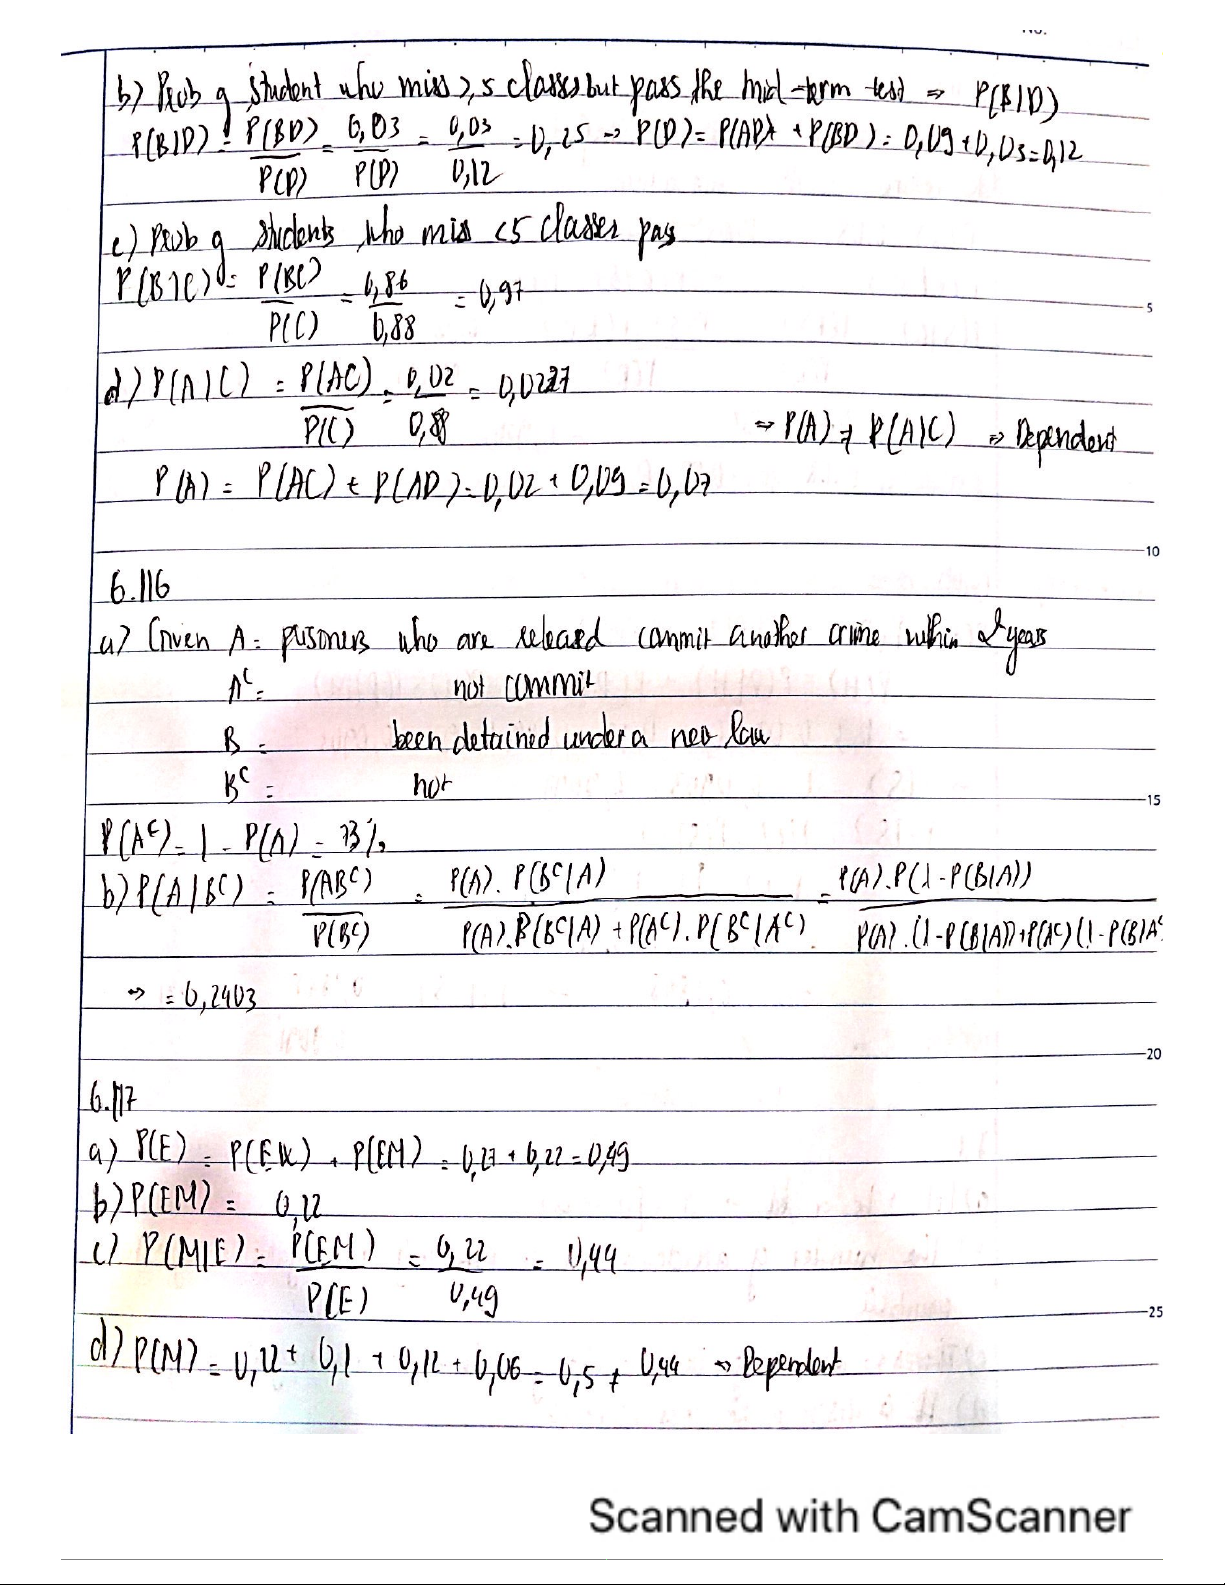 No.
b) Prob of student who miss ≥ 5 classes but pass the mid-term test ⇒ P(B|D)
P(B|D) = P(BD)/P(D) = 0,03/P(D) = 0,03/0,12 = 0,25 ⇒ P(D) = P(AD) + P(BD) = 0,09 + 0,03 = 0,12
c) Prob of students who miss <5 classes pass
P(B|C) = P(BC)/P(C) = 0,86/0,88 = 0,97
5
d) P(A|C) = P(AC)/P(C) = 0,02/0,88 = 0,0227
⇒ P(A) ≠ P(A|C) ⇒ Dependent
P(A) = P(AC) + P(AD) = 0,02 + 0,09 = 0,07
10
6.116
a) Given A = prisoners who are released commit another crime within 2 years
A^C = not commit
B = been detained under a new law
B^C = not
15
P(A^C) = 1 - P(A) = 73%
b) P(A|B^C) = P(AB^C)/P(B^C) = P(A).P(B^C|A)/P(A).P(B^C|A) + P(A^C).P(B^C|A^C) = P(A).P(1-P(B|A))/P(A).(1-P(B|A))+P(A^C)(1-P(B|A^C
⇒ = 0,2403
20
6.117
a) P(E) = P(EW) + P(EM) = 0,27 + 0,22 = 0,49
b) P(EM) = 0,22
c) P(M|E) = P(EM)/P(E) = 0,22/0,49 = 0,44
25
d) P(M) = 0,22 + 0,1 + 0,12 + 0,06 = 0,5 ≠ 0,44 ⇒ Dependent
Scanned with CamScanner